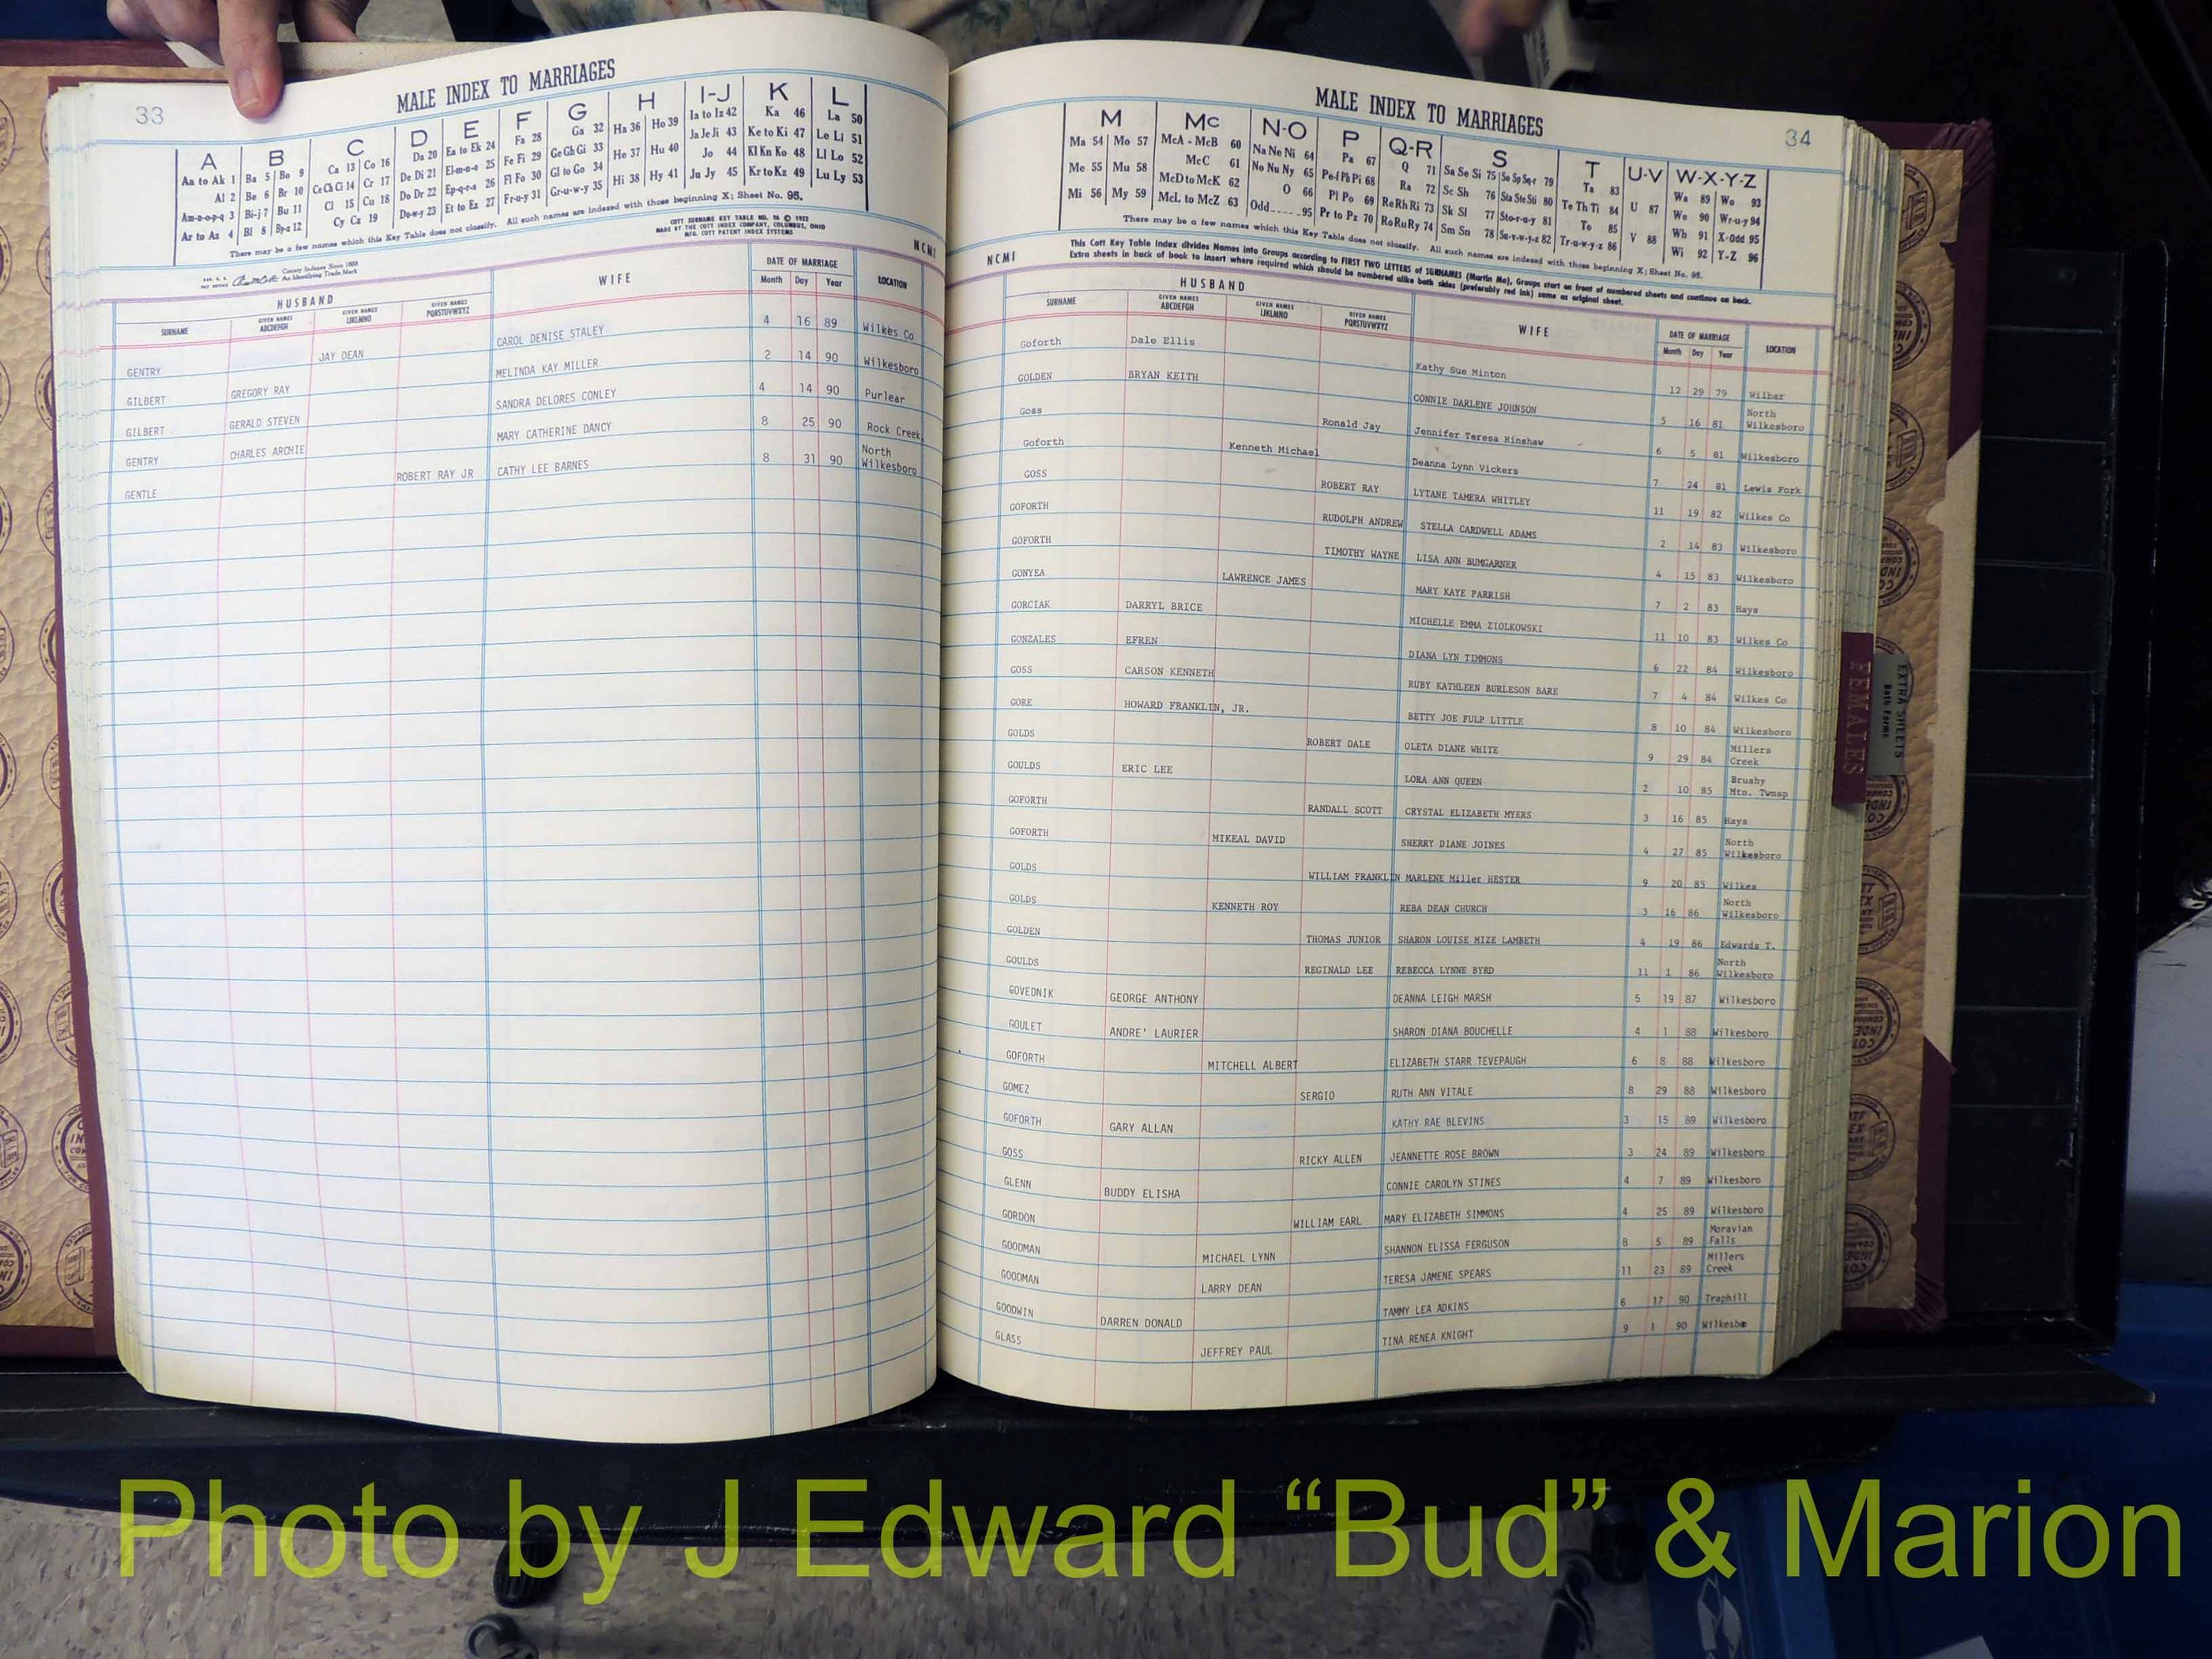 33
MALE INDEX TO MARRIAGES
A B C D E F G H I-J K L
Aa to Ak 1 Ba 5 Be 9 Ca 13 Co 16 Da 20 Ea to Ek 24 Fa 28 Ga 32 Ha 36 Ho 39 Ia to Iz 42 Ka 46 La 50
Al 2 Be 6 Br 10 Ce Ch Ci 14 Cr 17 De Di 21 El-m-n-o 25 Fe Fi 29 Ge Gh Gi 33 He 37 Hu 40 Ja Je Ji 43 Ke to Ki 47 Le Li 51
Am-n-o-p-q 3 Bi-j 7 Bu 11 Cl 15 Cu 18 Do Dr 22 Ep-q-r-s 26 Fl Fo 30 Gl to Go 34 Hi 38 Hy 41 Jo 44 Kl Kn Ko 48 Ll Lo 52
Ar to Az 4 Bl 8 By-z 12 Cy Cz 19 Du-w-y 23 Et to Ez 27 Fr-u-y 31 Gr-u-w-y 35 Ju Jy 45 Kr to Kz 49 Lu Ly 53
There may be a few names which this Key Table does not classify. All such names are indexed with those beginning X; Sheet No. 95.
COTT SURNAME KEY TABLE NO. 96 © 1952
MADE BY THE COTT INDEX COMPANY, COLUMBUS, OHIO
MFG. COTT PATENT INDEX SYSTEMS
NCMI
County Indexes Since 1888
An Identifying Trade Mark
HUSBAND WIFE DATE OF MARRIAGE LOCATION
SURNAME GIVEN NAMES ABCDEFGH GIVEN NAMES IJKLMNO GIVEN NAMES PQRSTUVWXYZ Month Day Year
GENTRY JAY DEAN CAROL DENISE STALEY 4 16 89 Wilkes Co
GILBERT GREGORY RAY MELINDA KAY MILLER 2 14 90 Wilkesboro
GILBERT GERALD STEVEN SANDRA DELORES CONLEY 4 14 90 Purlear
GENTRY CHARLES ARCHIE MARY CATHERINE DANCY 8 25 90 Rock Creek
GENTLE ROBERT RAY JR CATHY LEE BARNES 8 31 90 North Wilkesboro
34
MALE INDEX TO MARRIAGES
M Mc N-O P Q-R S T U-V W-X-Y-Z
Ma 54 Mo 57 McA - McB 60 Na Ne Ni 64 Pa 67 Q 71 Sa Se Si 75 So Sp Sq-r 79 Ta 83 U 87 Wa 89 Wo 93
Me 55 Mu 58 McC 61 No Nu Ny 65 Pe-f Ph Pi 68 Ra 72 Sc Sh 76 Sta Ste Sti 80 Te Th Ti 84 V 88 We 90 Wr-u-y 94
Mi 56 My 59 McD to McK 62 O 66 Pl Po 69 Re Rh Ri 73 Sk Sl 77 Sto-r-u-y 81 To 85 Wh 91 X-Odd 95
McL to McZ 63 Odd-----95 Pr to Pz 70 Ro Ru Ry 74 Sm Sn 78 Su-v-w-y-z 82 Tr-u-w-y-z 86 Wi 92 Y-Z 96
There may be a few names which this Key Table does not classify. All such names are indexed with those beginning X; Sheet No. 95.
NCMI
This Cott Key Table Index divides Names into Groups according to FIRST TWO LETTERS of SURNAMES (Martin Ma), Groups start on front of numbered sheets and continue on back.
Extra sheets in back of book to insert where required which should be numbered alike both sides (preferably red ink) same as original sheet.
HUSBAND WIFE DATE OF MARRIAGE LOCATION
SURNAME GIVEN NAMES ABCDEFGH GIVEN NAMES IJKLMNO GIVEN NAMES PQRSTUVWXYZ Month Day Year
Goforth Dale Ellis Kathy Sue Minton 12 29 79 Wilbar
GOLDEN BRYAN KEITH CONNIE DARLENE JOHNSON 5 16 81 North Wilkesboro
Goss Ronald Jay Jennifer Teresa Hinshaw 6 5 81 Wilkesboro
Goforth Kenneth Michael Deanna Lynn Vickers 7 24 81 Lewis Fork
GOSS ROBERT RAY LYTANE TAMERA WHITLEY 11 19 82 Wilkes Co
GOFORTH RUDOLPH ANDREW STELLA CARDWELL ADAMS 2 14 83 Wilkesboro
GOFORTH TIMOTHY WAYNE LISA ANN BUMGARNER 4 15 83 Wilkesboro
GONYEA LAWRENCE JAMES MARY KAYE PARRISH 7 2 83 Hays
GORCIAK DARRYL BRICE MICHELLE EMMA ZIOLKOWSKI 11 10 83 Wilkes Co
GONZALES EFREN DIANA LYN TIMMONS 6 22 84 Wilkesboro
GOSS CARSON KENNETH RUBY KATHLEEN BURLESON BARE 7 4 84 Wilkes Co
GORE HOWARD FRANKLIN, JR. BETTY JOE FULP LITTLE 8 10 84 Wilkesboro
GOLDS ROBERT DALE OLETA DIANE WHITE 9 29 84 Millers Creek
GOULDS ERIC LEE LORA ANN QUEEN 2 10 85 Brushy Mtn. Twnsp
GOFORTH RANDALL SCOTT CRYSTAL ELIZABETH MYERS 3 16 85 Hays
GOFORTH MIKEAL DAVID SHERRY DIANE JOINES 4 27 85 North Wilkesboro
GOLDS WILLIAM FRANKLIN MARLENE Miller HESTER 9 20 85 Wilkes
GOLDS KENNETH ROY REBA DEAN CHURCH 3 16 86 North Wilkesboro
GOLDEN THOMAS JUNIOR SHARON LOUISE MIZE LAMBETH 4 19 86 Edwards T.
GOULDS REGINALD LEE REBECCA LYNNE BYRD 11 1 86 North Wilkesboro
GOVEDNIK GEORGE ANTHONY DEANNA LEIGH MARSH 5 19 87 Wilkesboro
GOULET ANDRE' LAURIER SHARON DIANA BOUCHELLE 4 1 88 Wilkesboro
GOFORTH MITCHELL ALBERT ELIZABETH STARR TEVEPAUGH 6 8 88 Wilkesboro
GOMEZ SERGIO RUTH ANN VITALE 8 29 88 Wilkesboro
GOFORTH GARY ALLAN KATHY RAE BLEVINS 3 15 89 Wilkesboro
GOSS RICKY ALLEN JEANNETTE ROSE BROWN 3 24 89 Wilkesboro
GLENN BUDDY ELISHA CONNIE CAROLYN STINES 4 7 89 Wilkesboro
GORDON WILLIAM EARL MARY ELIZABETH SIMMONS 4 25 89 Wilkesboro
GOODMAN MICHAEL LYNN SHANNON ELISSA FERGUSON 8 5 89 Moravian Falls
GOODMAN LARRY DEAN TERESA JAMENE SPEARS 11 23 89 Millers Creek
GOODWIN DARREN DONALD TAMMY LEA ADKINS 6 17 90 Traphill
GLASS JEFFREY PAUL TINA RENEA KNIGHT 9 1 90 Wilkesbo
FEMALES
EXTRA SHEETS
Both Forms
Photo by J Edward “Bud” & Marion